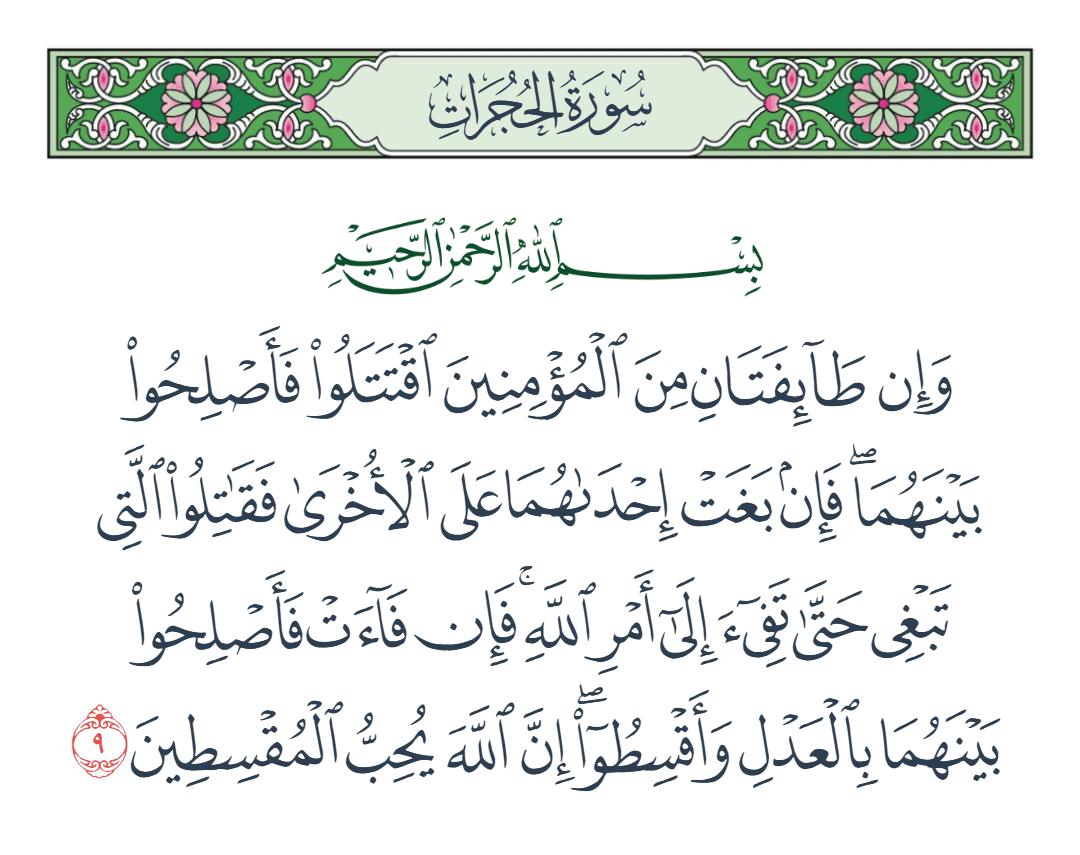 سُورَةُ الحُجُرَاتِ
بِسْمِ ٱللَّهِ ٱلرَّحْمَٰنِ ٱلرَّحِيمِ
وَإِن طَآئِفَتَانِ مِنَ ٱلْمُؤْمِنِينَ ٱقْتَتَلُوا۟ فَأَصْلِحُوا۟
بَيْنَهُمَا ۖ فَإِنۢ بَغَتْ إِحْدَىٰهُمَا عَلَى ٱلْأُخْرَىٰ فَقَٰتِلُوا۟ ٱلَّتِى
تَبْغِى حَتَّىٰ تَفِىٓءَ إِلَىٰٓ أَمْرِ ٱللَّهِ ۚ فَإِن فَآءَتْ فَأَصْلِحُوا۟
بَيْنَهُمَا بِٱلْعَدْلِ وَأَقْسِطُوٓا۟ ۖ إِنَّ ٱللَّهَ يُحِبُّ ٱلْمُقْسِطِينَ ٩